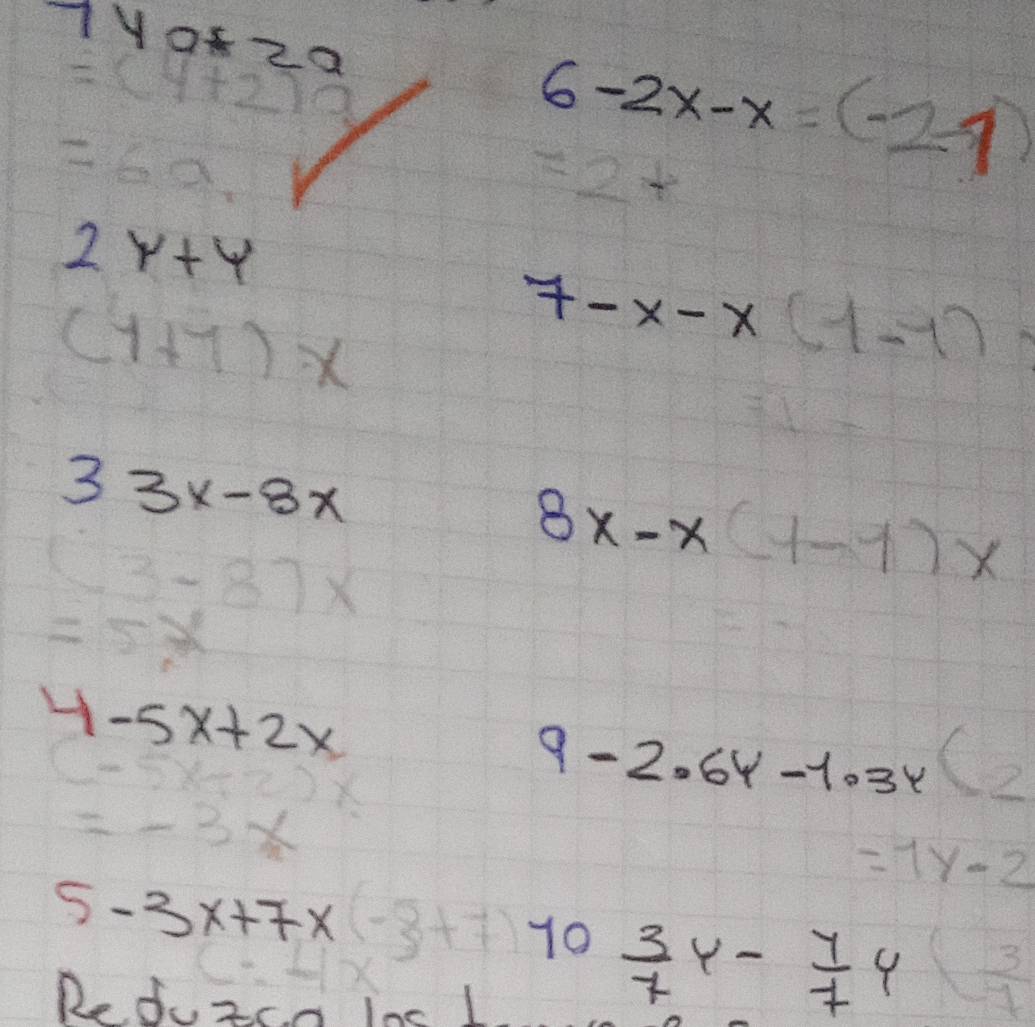 1 4a+2a
= (4+2)a
= 6a.
2 y+y
(1+1) x
3 3x-8x
(3-8)x
= 5x
4 -5x+2x
(-5x+2)x
= -3x
5 -3x+7x (-3+7)
(= 4x
6 -2x-x = (-2-1)
= 2+
7 -x-x (1-1)
8 x-x (1-1) x
9 -2.6y-1.3y (2
= 1y-2
10 3/7 y - 1/7 y (3/7
Reduzca los